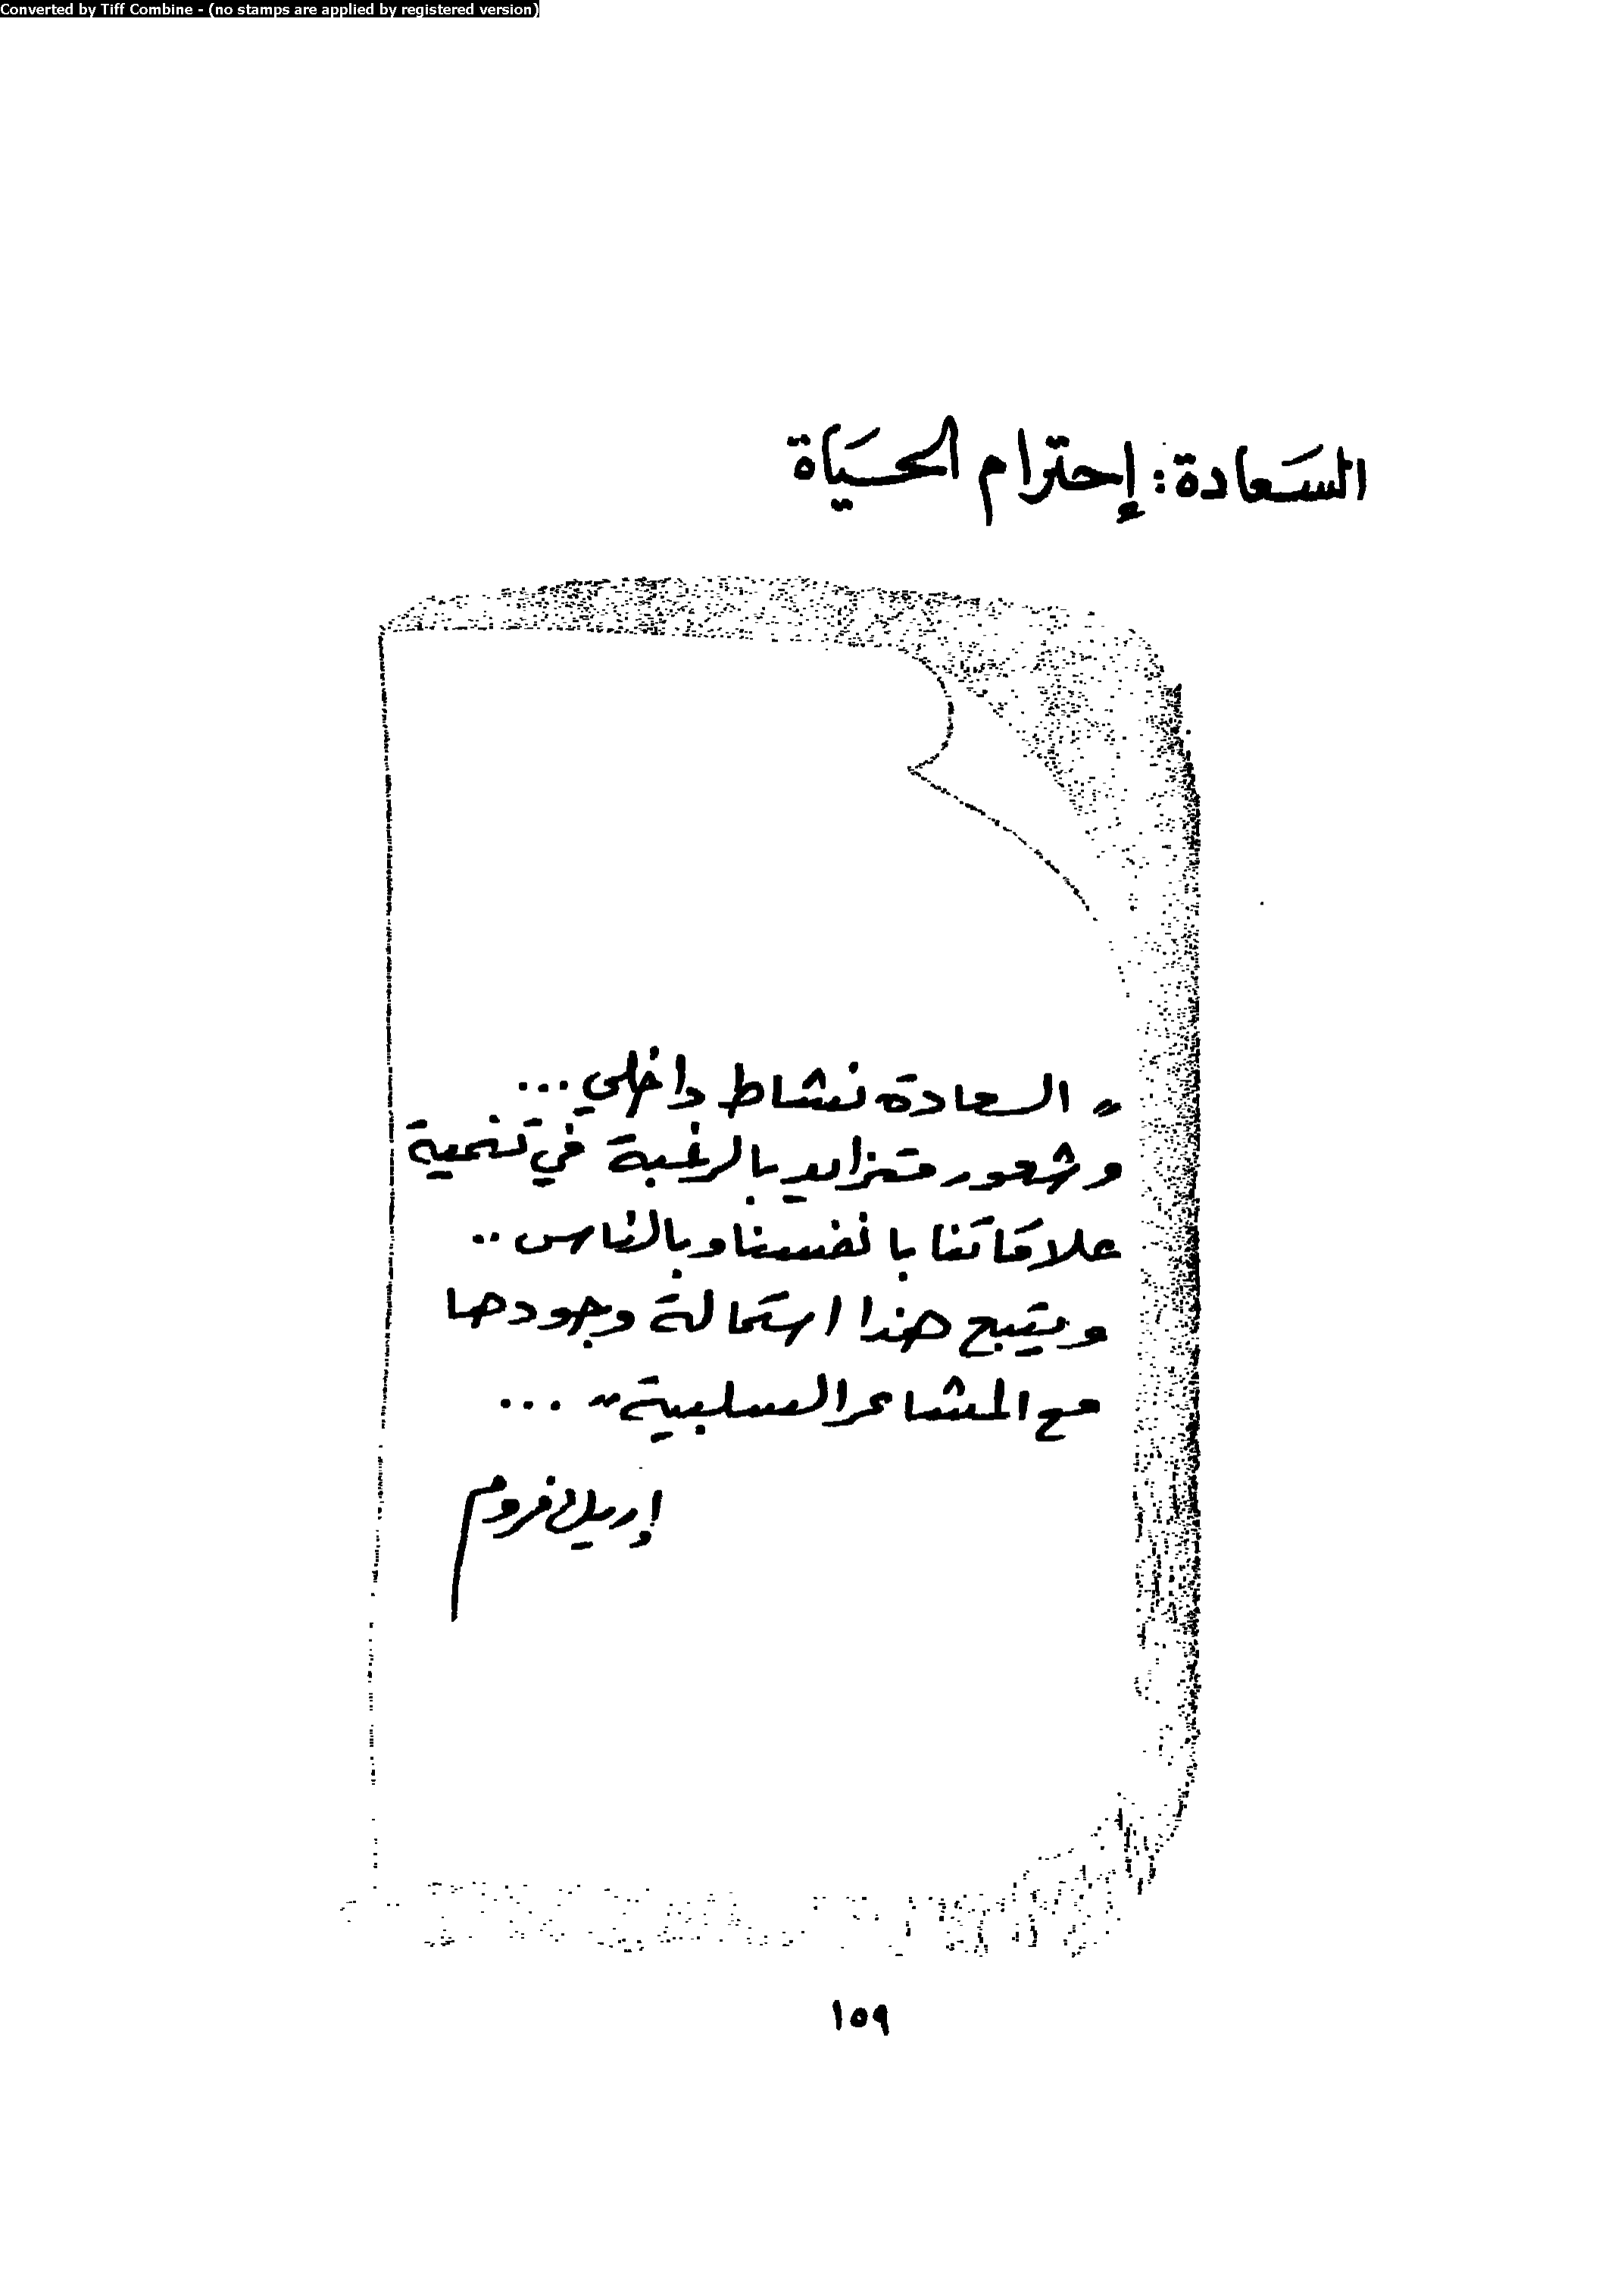 Converted by Tiff Combine - (no stamps are applied by registered version)
السَعادة: إحترام الحسَياة
" السعادة نشاط داخلي ...
وشعور متزايد بالرغبة في تنمية
علاقاتنا بانفسنا وبالناس ..
ويتبع هذا استحالة وجودها
مع المشاعر السلبية " ...
إريك فروم
١٥٩